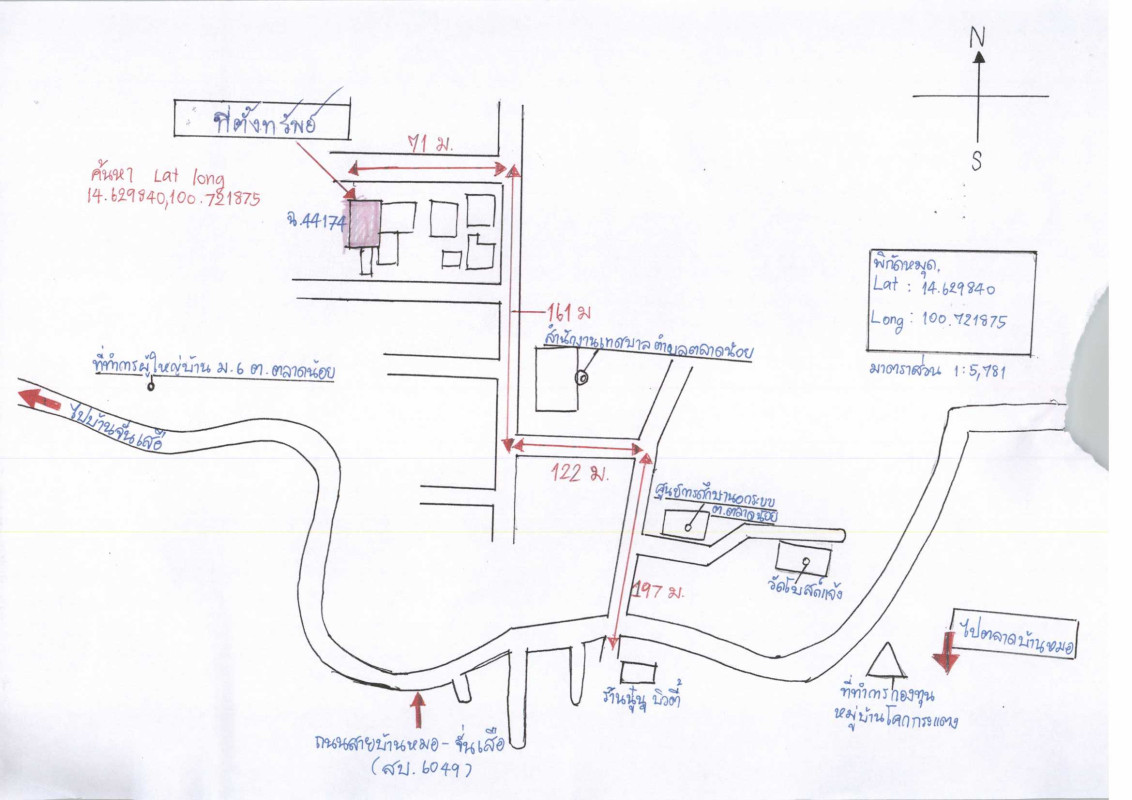 N
S
ที่ตั้งทรัพย์
71 ม.
ค้นหา Lat long
14.629840,100.721875
ฉ.44174
161 ม
พิกัดหมุด,
Lat : 14.629840
Long : 100.721875
มาตราส่วน 1:5,781
สำนักงานเทศบาลตำบลตลาดน้อย
ที่ทำการผู้ใหญ่บ้าน ม.6 ต.ตลาดน้อย
ไปบ้านชั่นเสือ
122 ม.
ศูนย์การศึกษานอกระบบ
ต.ตลาดน้อย
197 ม.
วัดโบสถ์แจ้ง
ไปตลาดบ้านหมอ
ที่ทำการกองทุน
หมู่บ้านโคกกระแตง
ร้านนู๋นุ บิวตี้
ถนนสายบ้านหมอ - ชั่นเสือ
(สบ. 6049)